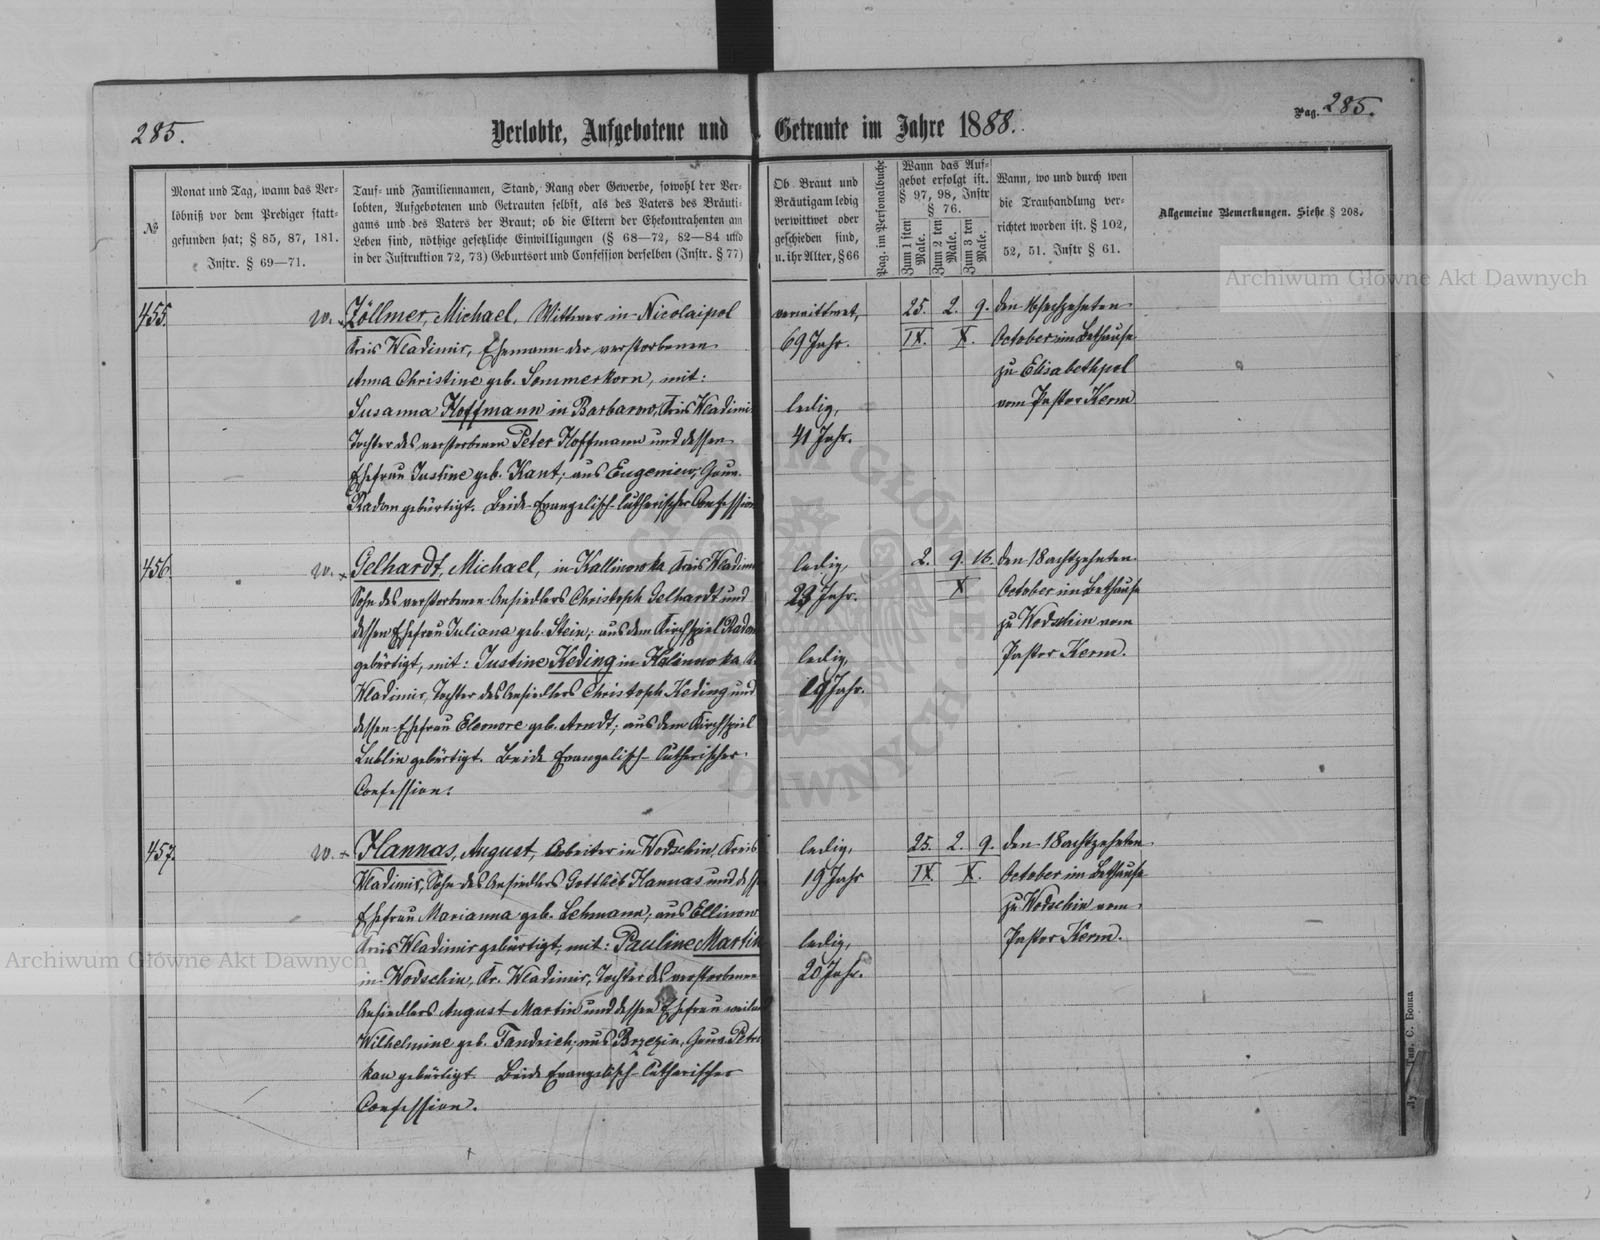 285.
Verlobte, Aufgebotene und Getraute im Jahre 1888.
Pag. 285.
№
Monat und Tag, wann das Ver-
löbniß vor dem Prediger statt-
gefunden hat; § 85, 87, 181.
Instr. § 69—71.
Tauf- und Familiennamen, Stand, Rang oder Gewerbe, sowohl der Ver-
lobten, Aufgebotenen und Getrauten selbst, als des Vaters des Bräuti-
gams und des Vaters der Braut; ob die Eltern der Ehekontrahenten am
Leben sind, nöthige gesetzliche Einwilligungen (§ 68—72, 82—84 und
in der Instruktion 72, 73) Geburtsort und Confession derselben (Instr. § 77)
Ob Braut und
Bräutigam ledig
verwittwet oder
geschieden sind,
u. ihr Alter, § 66
Pag. im Personalbuche
Wann das Auf-
gebot erfolgt ist.
§ 97, 98, Instr
§ 76.
Zum 1 sten Male.
Zum 2 ten Male.
Zum 3 ten Male.
Wann, wo und durch wen
die Trauhandlung ver-
richtet worden ist. § 102,
52, 51. Instr § 61.
Allgemeine Bemerkungen. Siehe § 208.
455.
w.
Zöllmer, Michael, Wittwer in Nicolaipol
Kreis Wladimir, Ehemann der verstorbenen
Anna Christine geb. Sommerkorn, mit:
Susanna Hoffmann in Barbarow, Kreis Wladimi
Tochter des verstorbenen Peter Hoffmann und dessen
Ehefrau Justine geb. Kant, aus Eugeniew, Gouv.
Radom gebürtigt. Beide Evangelisch-lutherischer Confession
verwittwet,
69 Jahr.
ledig,
41 Jahr.
25. 2. 9.
IX. X.
den 16 sechzehnten
October im Bethause
zu Elisabethpol
vom Pastor Kerm
456.
w. +
Gelhardt, Michael, in Kallinowka Kreis Wladimi
Sohn des verstorbenen Ansiedlers Christoph Gelhardt und
dessen Ehefrau Juliana geb. Stein; aus dem Kirchspiel Radom
gebürtigt, mit: Justine Keding in Kalinowka K.
Wladimir, Tochter des Ansiedlers Christoph Keding und
dessen Ehefrau Eleonore geb. Arndt; aus dem Kirchspiel
Lublin gebürtigt. Beide Evangelisch-Lutherischer
Confession.
ledig,
23 Jahr.
ledig,
19 Jahr.
2. 9. 16.
X
den 18 achtzehnten
October im Bethause
zu Wodschin vom
Pastor Kerm.
457.
w. +
Hannas, August, Arbeiter in Wodschin, Kreis
Wladimir, Sohn des Ansiedlers Gottlieb Hannas und dess
Ehefrau Marianna geb. Lehmann; aus Ellinow
Kreis Wladimir gebürtigt, mit: Pauline Martin
in Wodschin, Kr. Wladimir, Tochter des verstorbenen
Ansiedlers August Martin und dessen Ehefrau weiland
Wilhelmine geb. Tandrich; aus Brzezin, Gouv. Petro
kau gebürtigt. Beide Evangelisch-Lutherischer
Confession.
ledig,
19 Jahr
ledig,
20 Jahr.
25. 2. 9.
IX. X.
den 18 achtzehnten
October im Bethause
zu Wodschin vom
Pastor Kerm.
Archiwum Główne Akt Dawnych
Archiwum Główne Akt Dawnych